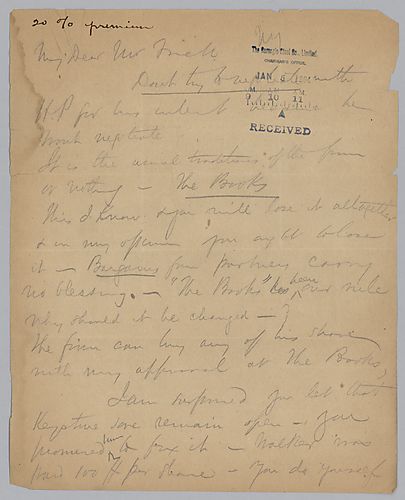 20 % premium
My Dear Mr Frick
The Carnegie Steel Co., Limited.
CHAIRMAN'S OFFICE.
JAN 5
AM
9 10 11
RECEIVED
Don't try to negotiate with
H.P. for his interest he
won't negotiate
It is the usual traditions of the firm
or nothing — The Books
This I know & you will lose it altogether
& in my opinion you ought to lose
it — Bargains from partners carry
no blessing — "The Books" has been our rule
why should it be changed —
The firm can buy any of his share
with my approval at The Books,
I am surprised you let that
Keystone sore remain open — you
promised to fix it — Walker was
paid 100 per share — You do yourself